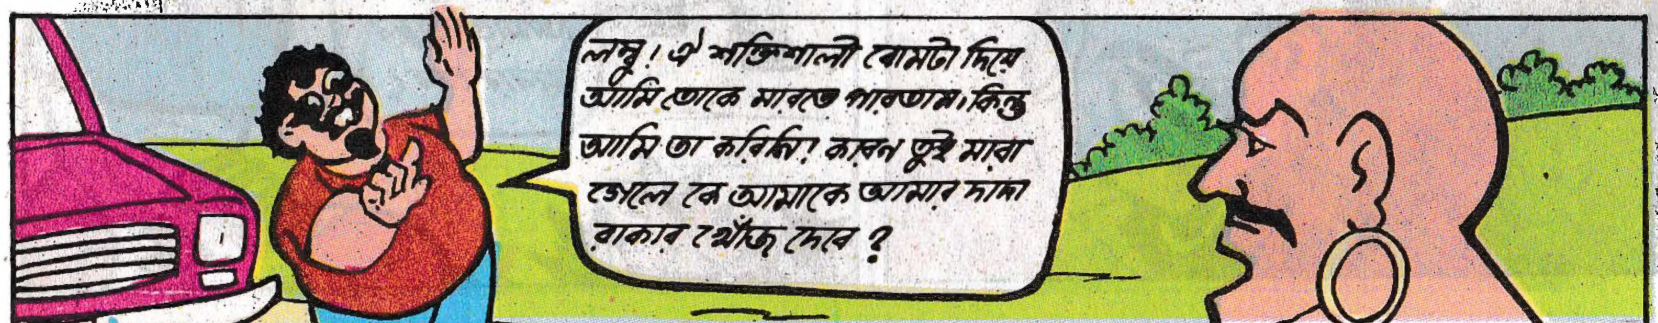 লম্বু! ঐ শক্তিশালী বোমটা দিয়ে
আমি তোকে মারতে পারতাম। কিন্তু
আমি তা করিনি! কারন তুই মারা
গেলে কে আমাকে আমার দাদা
রাকার খোঁজ দেবে?